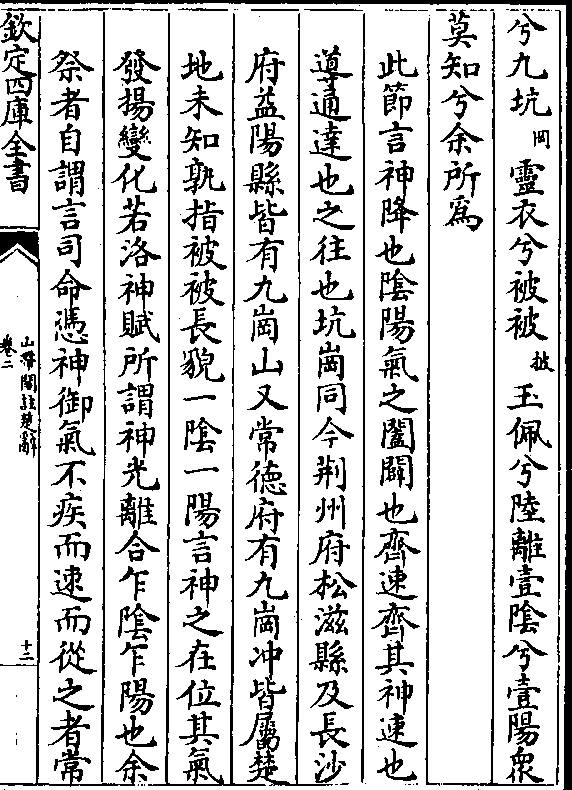 兮九坑岡靈衣兮被被披玉佩兮陸離壹陰兮壹陽衆
莫知兮余所爲
此節言神降也陰陽氣之闔闢也齊速齊其神速也
導通達也之往也坑崗同今荆州府松滋縣及長沙
府益陽縣皆有九崗山又常德府有九崗冲皆屬楚
地未知孰指被被長貌一陰一陽言神之在位其氣
發揚變化若洛神賦所謂神光離合乍陰乍陽也余
祭者自謂言司命憑神御氣不疾而速而從之者常
欽定四庫全書
山帶閣註楚辭
卷二
十二